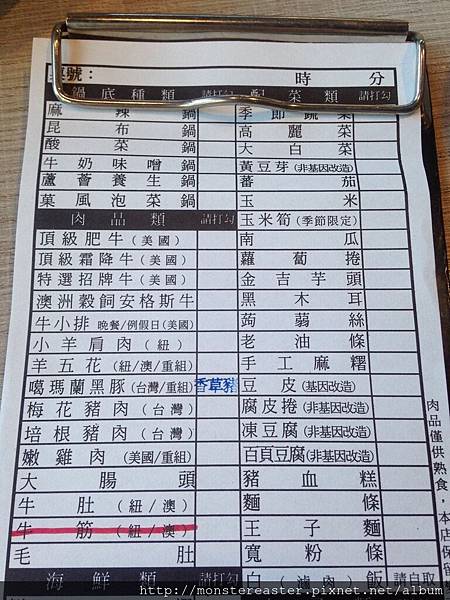 桌號： 時 分
鍋底種類 請打勾
麻辣鍋
昆布鍋
酸菜鍋
牛奶味噌鍋
蘆薈養生鍋
菓風泡菜鍋
肉品類 請打勾
頂級肥牛(美國)
頂級霜降牛(美國)
特選招牌牛(美國)
澳洲穀飼安格斯牛
牛小排 晚餐/例假日(美國)
小羊肩肉(紐)
羊五花(紐/澳/重組)
噶瑪蘭黑豚(台灣/重組) 香草豬
梅花豬肉(台灣)
培根豬肉(台灣)
嫩雞肉(美國/重組)
大腸頭
牛肚(紐/澳)
牛筋(紐/澳)
毛肚
海鮮類 請打勾
配菜類 請打勾
季節蔬菜
高麗菜
大白菜
黃豆芽(非基因改造)
蕃茄
玉米
玉米筍(季節限定)
南瓜
蘿蔔捲
金吉芋頭
黑木耳
蒟蒻絲
老油條
手工麻糬
豆皮(基因改造)
腐皮捲(非基因改造)
凍豆腐(非基因改造)
百頁豆腐(非基因改造)
豬血糕
麵條
王子麵
寬粉條
白(滷肉)飯 請自取
肉品僅供熟食，本店保留
http://monstereaster.pixnet.net/album